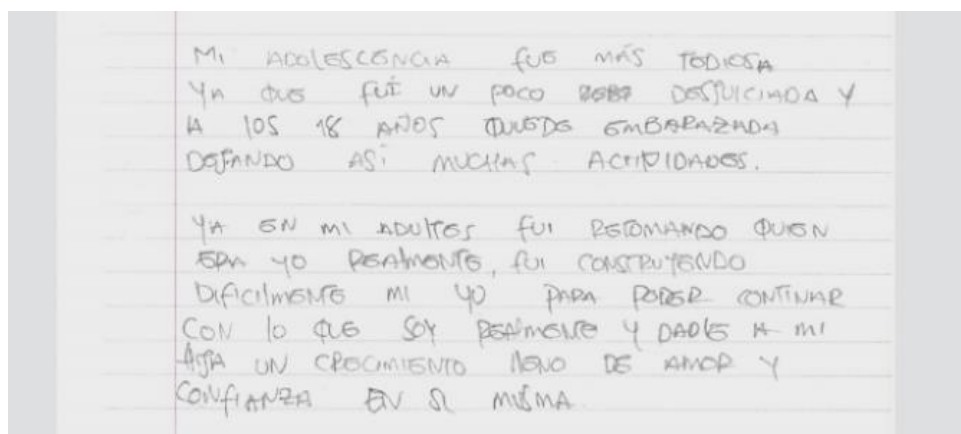 Mi ADOLESCENCIA fue más TEDIOSA
YA QUE fuí UN POCO DESJUICIADA Y
A LOS 18 AÑOS QUEDE EMBARAZADA
DEJANDO ASÍ MUCHAS ACTIVIDADES.
YA EN MI ADULTES fui RETOMANDO QUIEN
ERA YO REALMENTE, fui CONSTRUYENDO
DIFICILMENTE MI YO PARA PODER CONTINAR
CON LO QUE SOY REALMENTE Y DARLE A MI
HIJA UN CRECIMIENTO LLENO DE AMOR Y
CONFIANZA EN SI MISMA